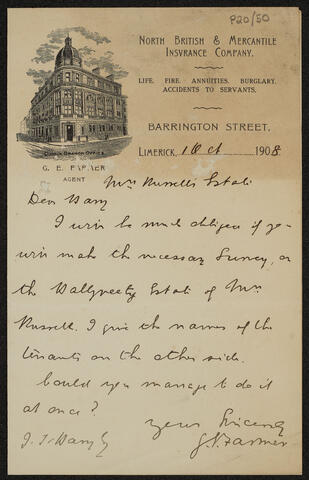 P20/50
North British & Mercantile
Insurance Company.
Life. Fire. Annuities. Burglary.
Accidents to Servants.
Barrington Street,
Limerick, 1 Oct 1908
Dublin Branch Office.
G. E. FARMER
AGENT
Mrs Russell's Estate
Dear Barry
I will be much obliged if you
will make the necessary Survey, on
the Ballyneety Estate of Mrs
Russell. I give the names of the
tenants on the other side.
Could you manage to do it
at once?
Yours Sincerely
Farmer
Barry